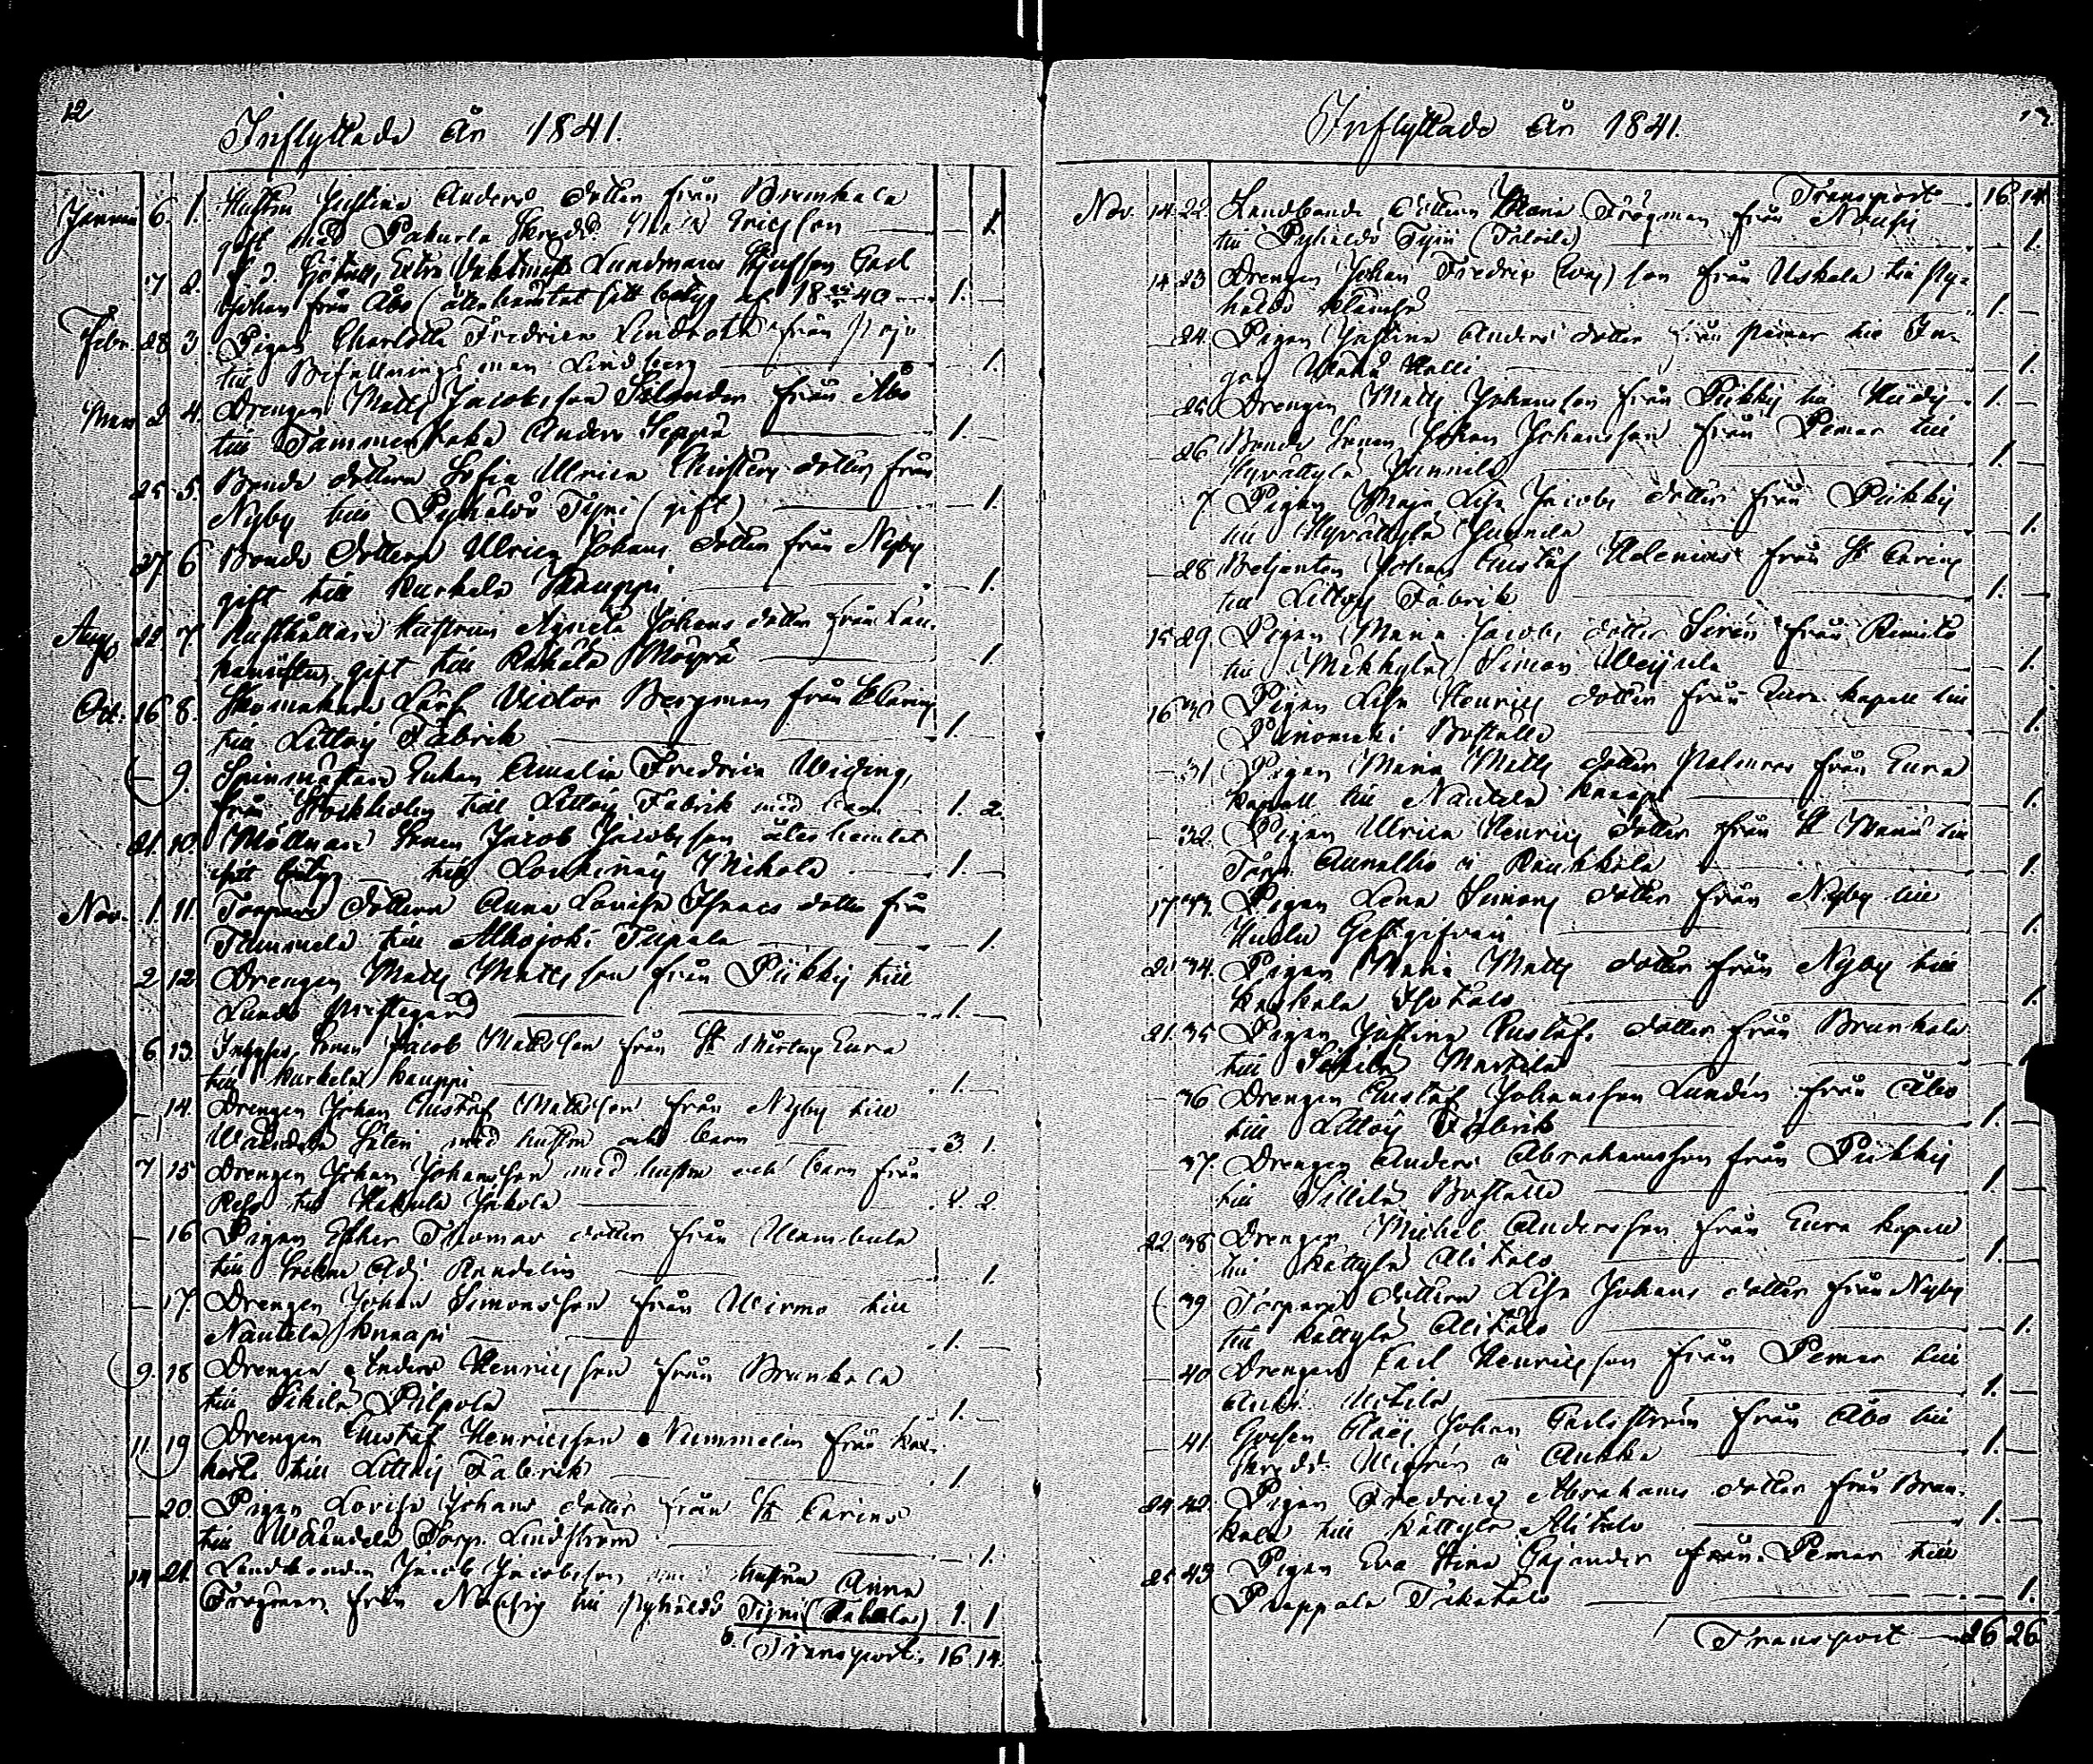 12
Inflyttade År 1841.
Januari 6. 1. Hustru Justina Anders dotter från Brunkala
gift med Pakurla Skrädd. Mats Ericsson — 1
7 2. Lundmans Carl
Johan från Åbo (återhämtat sitt betyg af 18 40 — 1. —
Febr. 28 3. Pigan Charlotta Fredrica Lindroth från
till Befallningsman Lindberg — 1.
Mars 2 4. Drengen Matts Jacobsson Selander från Åbo
till Tammenhaka Anders Seppä — 1. —
25 5. Bonde dottern Sofia Ulrica Christers dotter från
Nyby till Pyhältö Tyni (gift) — 1.
27 6 Bonde dottern Ulrica Johans dotter från Nyby
gift till Kurkela Kauppi — 1.
Aug. 22 7. Hustrun Agneta Johans dotter från
gift till Rähälä Mäyrä — 1
Oct. 16 8. Skomakare Lärl. Victor Bergman från St Carins
till Littois Fabrik — 1. —
— 9. Spinnmästare Enkan Amalia Fredrica Widing,
från Stockholm till Littois Fabrik med barn — 1. 2.
21. 10. Möllnare Sonen Jacob Jacobsson återhemtat
sitt betyg — till Loukinais Mikola — 1. —
Nov. 1. 11. Torpare dottern Anna Lovisa Isaacs dotter från
Tammela till Alhojoki Tupala — 1
2 12 Drengen Matts Mattsson från Piikkis till
Lundo Prestegård — 1. —
6 13. Inhyses Sonen Jacob Mattsson från St Mårtens Eura
till Kurkela Kauppi — 1. —
— 14. Drengen Johan Gustaf Mattsson från Nyby till
Wäändelä med hustru och barn — 3. 1.
7 15 Drengen Johan Johansson med hustru och barn från
Reso till Hakula Jakola — 2. 2.
— 16 Pigan Esther Thomas dotter från Ulambula
till Adj. Randelin — 1.
— 17. Drengen Johan Simonsson från Wirmo till
Nautela Knaapi — 1. —
9. 18 Drengen Anders Henricsson från Brunkala
till Sikilä Pilpola — 1. —
11. 19 Drengen Gustaf Henricsson Nummelin från
till Littois Fabrik — 1
— 20. Pigan Lovisa Johans dotter från St Carins
till Wäändelä Torp. Lindström — 1.
14 21. Landbonden Jacob Jacobsson med hustru Anna
Trögman från Nousis till Pyhältö Tyni 1. 1
Transport. 16. 14.
13.
Inflyttade År 1841.
Transport — 16 14
Nov. 14. 22. Landbonde dottern Maria Trögman från Nousis
till Pyhältö Tyni — 1.
14 23 Drengen Johan Fredric son från Uskela till Py-
hältö — 1.
— 24. Pigan Justina Anders dotter från Pemar till
— 1.
— 25 Drengen Matts Johansson från Piikkis till — 1. —
— 26 Bonde Sonen Johan Johansson från Pemar till
Hyvättylä Junnila — 1
7 Pigan Maja Lisa Jacobs dotter från Piikkis
till Hyvättylä Junnila — 1.
— 28 Betjenten Johan Gustaf Helenius från St Carins
till Littois Fabrik — 1. —
15 29. Pigan Maria Jacobs dotter Serén från Rimito
till Simon — 1.
16 30 Pigan Lisa Henrics dotter från Eura kapell till
Boställe — 1.
— 31. Pigan Maria Matts dotter från Eura
kapell till Nautela Knaapi — 1.
— 32. Pigan Ulrica Henrics dotter från St Marie till
Torp. i Raukkala — 1.
17 33. Pigan Lena Simons dotter från Nyby till
Gestgifvari — 1.
20 34. Pigan Maria Matts dotter från Nyby till
Kaskala Isotalo — 1.
21. 35 Pigan Justina Gustafs dotter från Brunkala
till Sikilä Markila —
— 36 Drengen Gustaf Johansson Lundén från Åbo
till Littois Fabrik — 1. —
— 37. Drengen Anders Abrahamsson från Piikkis
till Sillilä Boställe — 1. —
22. 38 Drengen Michel Andersson från Eura kapell
till Kättylä Alitalo — 1.
39 Torpare dottern Lisa Johans dotter från Nyby
till Kättylä Alitalo — 1.
— 40 Drengen Carl Henricsson från Pemar till
— 1. —
— 41. Gossen Claës Johan Carlström från Åbo till
Skrädd. i Aukka — 1. —
24 42. Pigan Fredrica Abrahams dotter från Brun-
kala till Kättylä Alitalo — 1. —
25 43 Pigan Eva Stina Cajander från Pemar till
Prappala Pikatalo — 1.
Transport — 26 26